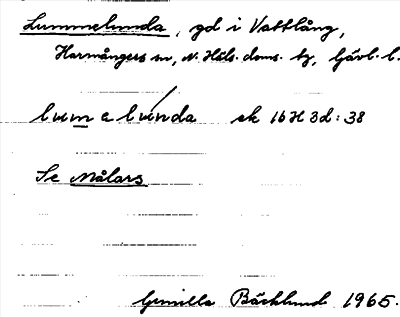 Lummelunda, gd i Vattlång,
Harmångers sn, N. Häls. doms. tg, Gävl. l.
lumelúnda ek 16H3d:38
Se Målars
Gunilla Bäcklund 1965.